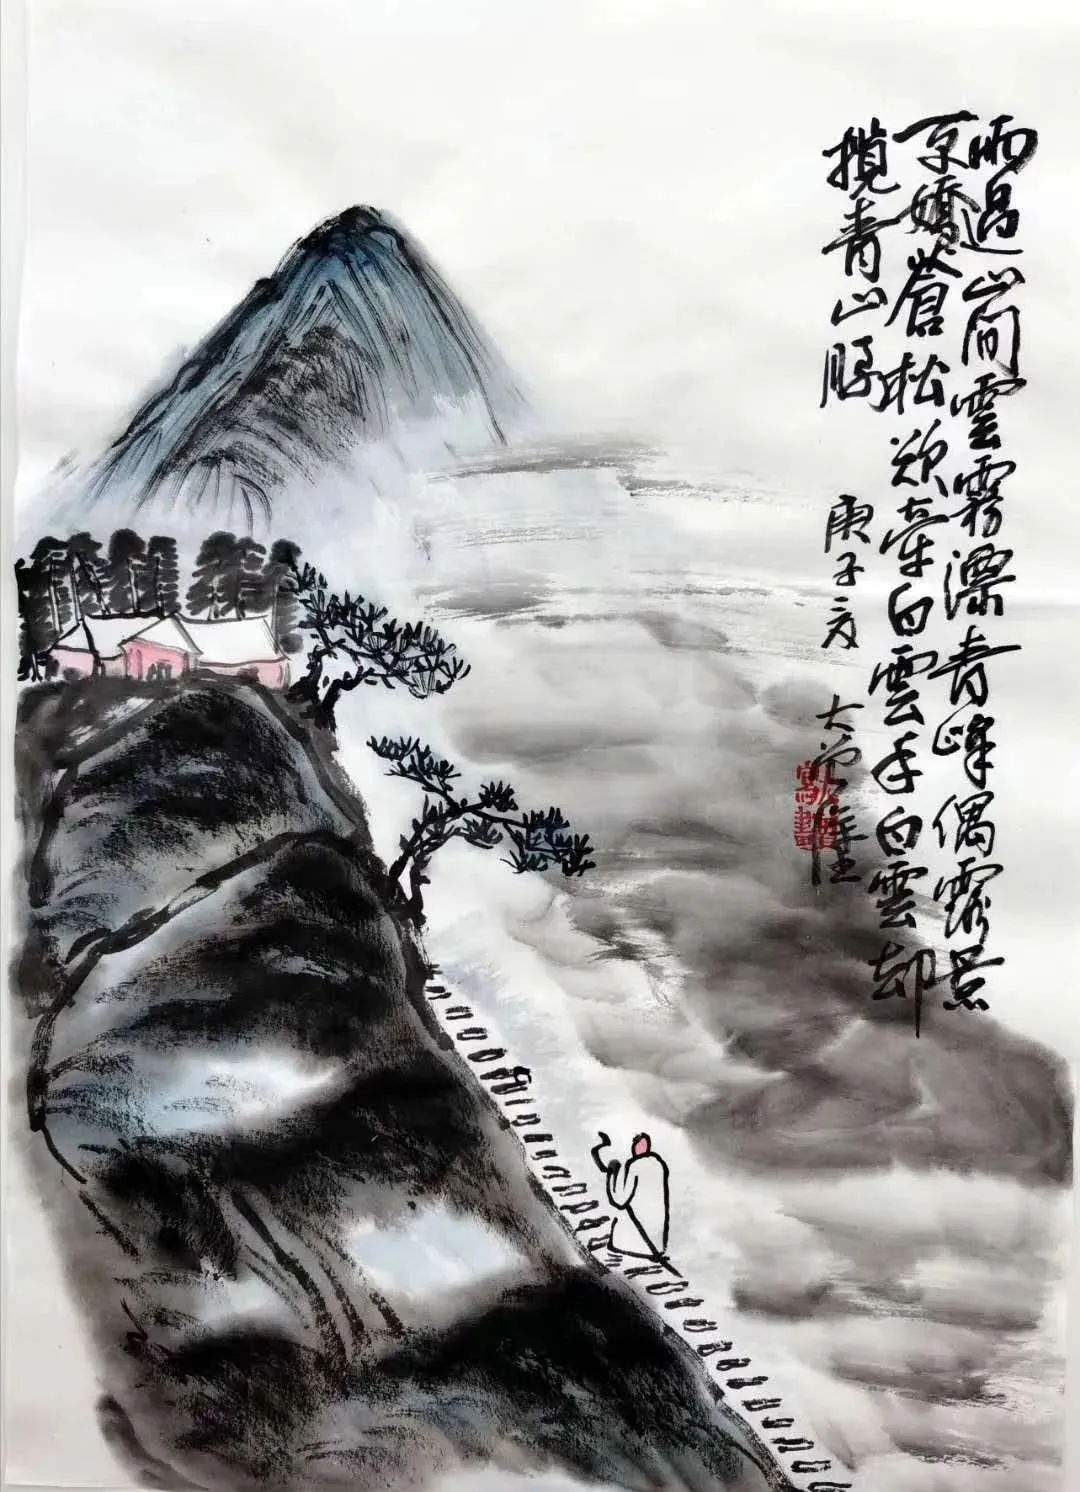 雨過山間雲霧漂青峰偶露景
百嬌蒼松欲牽白雲手白雲却
攬青山腰
庚子
大